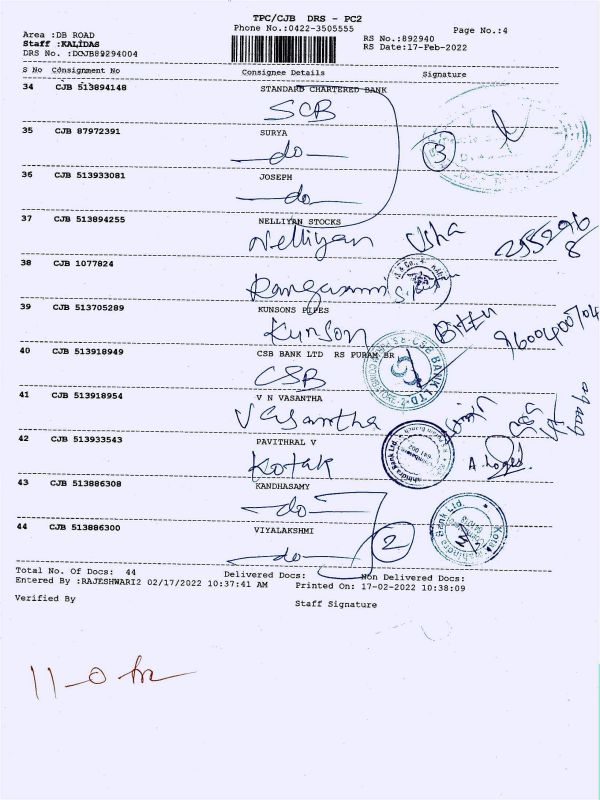 TPC/CJB DRS - PC2
Phone No.:0422-3505555
Page No.:4
Area :DB ROAD
Staff :KALIDAS
DRS No. :DCJB89294004
RS No.:892940
RS Date:17-Feb-2022
S No Consignment No Consignee Details Signature
34 CJB 513894148 STANDARD CHARTERED BANK
SCB
35 CJB 87972391 SURYA
do
3
36 CJB 513933081 JOSEPH
do
37 CJB 513894255 NELLIYAN STOCKS
Nelliyan Usha
38 CJB 1077824
39 CJB 513705289 KUNSONS PIPES
Kunson 9600400704
40 CJB 513918949 CSB BANK LTD RS PURAM BR
CSB
CSB BANK LTD
41 CJB 513918954 V N VASANTHA
Vasantha
42 CJB 513933543 PAVITHRAL V
Kotak
43 CJB 513886308 KANDHASAMY
do
44 CJB 513886300 VIYALAKSHMI
do 2
Total No. Of Docs: 44 Delivered Docs: Non Delivered Docs:
Entered By :RAJESHWARI2 02/17/2022 10:37:41 AM Printed On: 17-02-2022 10:38:09
Verified By Staff Signature